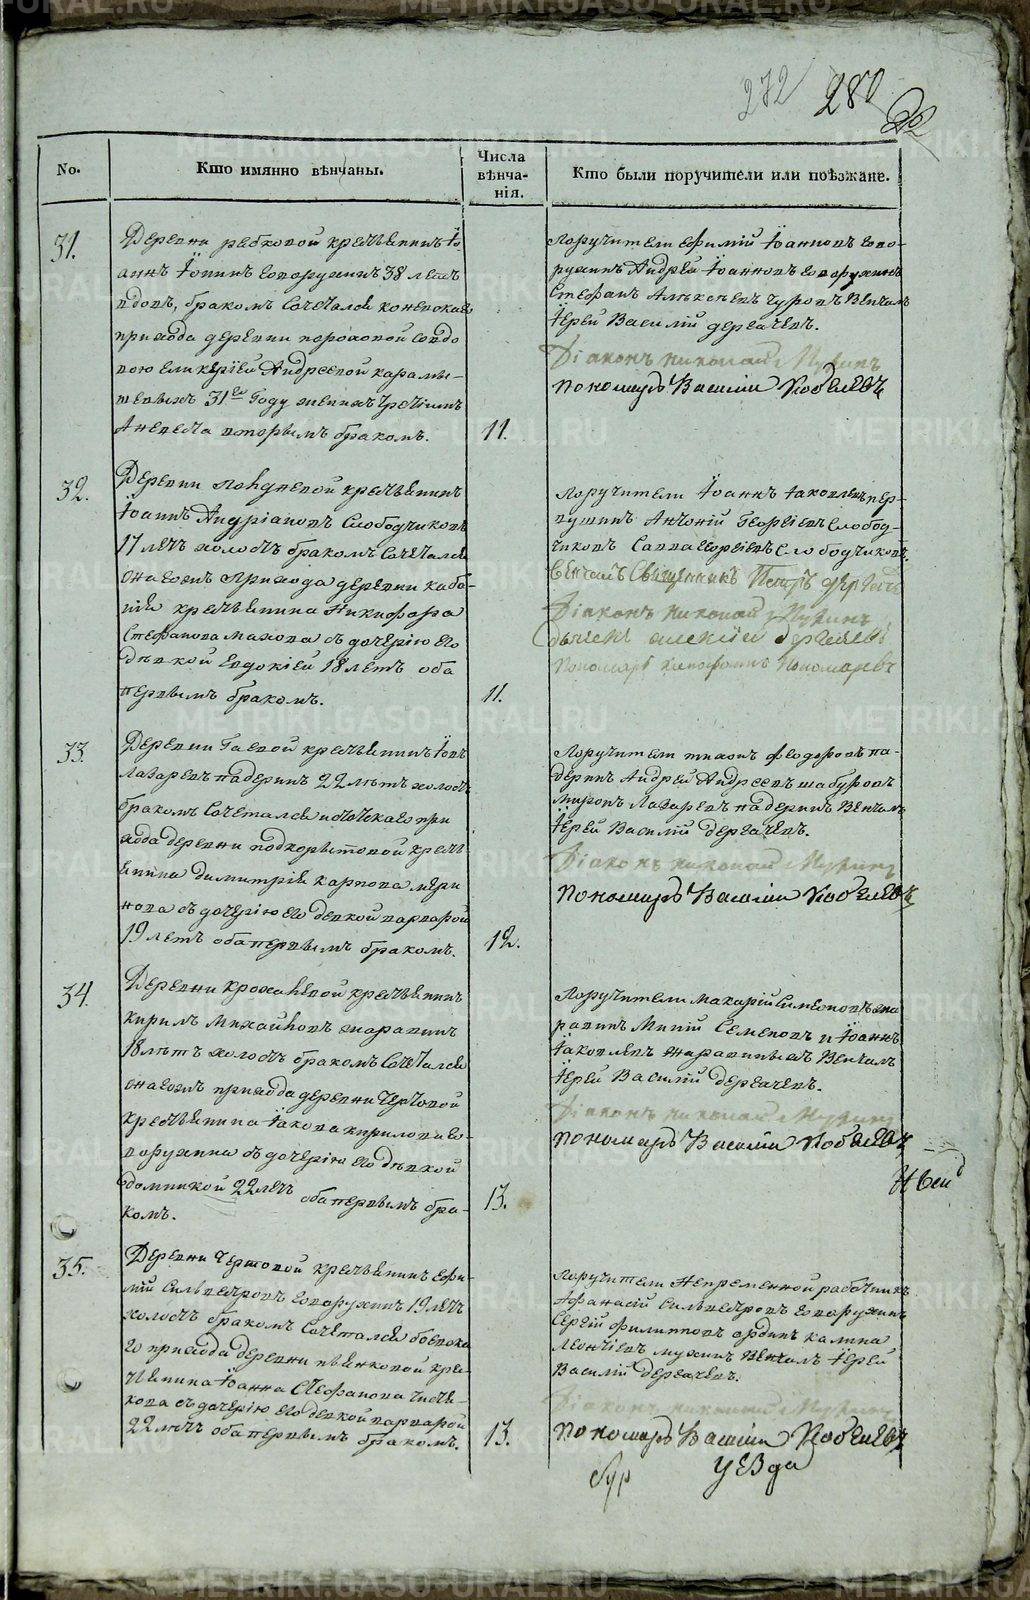 272 280
No.
Кто имянно вѣнчаны.
Числа
вѣнча-
нія.
Кто были поручители или поѣзжане.
31.
Деревни ребковой крестьянинъ Іо
аннъ Іонинъ Говорухинъ 38 летъ
вдовъ, бракомъ сочетался
прихода деревни пороховой совдо
вою Гликеріей Андреевой
31 году
вторымъ бракомъ.
11.
Поручители Ефимій Іоанновъ Гово-
рухинъ Андрей Іоанновъ Говорухинъ
Стефанъ Алексеевъ Чуровъ Венчалъ
Іерей Василій Дергачевъ.
Діаконъ Николай Мухинъ
Пономарь Василій
32.
Деревни крестьянинъ
Іоаннъ Андріановъ Слободчиковъ
17 летъ холостъ бракомъ сочетался
онагожъ прихода деревни каба-
ньи крестьянина Никифора
Стефанова Махова съ дочерію его
дѣвкой Евдокіей 18 летъ оба
первымъ бракомъ.
11.
Поручители Іоаннъ Іаковлевъ пер-
вушинъ Антоній Георгіевъ Слобод-
чиковъ Савва Георгіевъ Слободчиковъ.
Венчалъ Священникъ Петръ
Діаконъ Николай Мухинъ
дьячекъ Алексій Дергачевъ
Пономарь Ксенофонтъ Пономаревъ
33.
Деревни Гаевой крестьянинъ Іовъ
Лазаревъ Падеринъ 22 лѣтъ холостъ
бракомъ сочетался при
хода деревни подкорытовой кресть
янина Димитрія Карпова
нова съ дочерію его девкой варварой
19 летъ оба первымъ бракомъ.
12.
Поручители тихонъ Феодоровъ па-
деринъ Андрей Андреевъ Шабуровъ
Миронъ Лазаревъ Падеринъ Венчалъ
Іерей Василій Дергачевъ.
Діаконъ Николай Мухинъ
Пономарь Василій
34.
Деревни крестьянинъ
Кирилъ Михайловъ Шаравинъ
18 лѣтъ холостъ бракомъ сочетался
онагожъ прихода деревни Чертовой
крестьянина Іакова Кирилова Го-
ворухина съ дочерію его дѣвкой
Домникой 22 летъ оба первымъ бра-
комъ.
13.
Поручители Макарій Симеоновъ Ша
равинъ Миній Семеновъ и Іоаннъ
Іаковлевъ Шаравины Венчалъ
Іерей Василій Дергачевъ.
Діаконъ Николай Мухинъ
Пономарь Василій
35.
Деревни Чертовой крестьянинъ Ефи-
мій Сильвестровъ Говорухинъ 19 летъ
холостъ бракомъ сочетался боевска
го прихода деревни пьянковой кре-
стьянина Іоанна Стефанова Чисте-
кова съ дочерію его девкой варварой
22 летъ оба первымъ бракомъ.
13.
Поручители Непременной работникъ
Афанасій Сильвестровъ Говорухинъ
Сергій Филипповъ Ординъ калина
Леонтіевъ Мухинъ Венчалъ Іерей
Василій Дергачевъ.
Діаконъ Николай Мухинъ
Пономарь Василій
уезда
METRIKI.GASO-URAL.RU